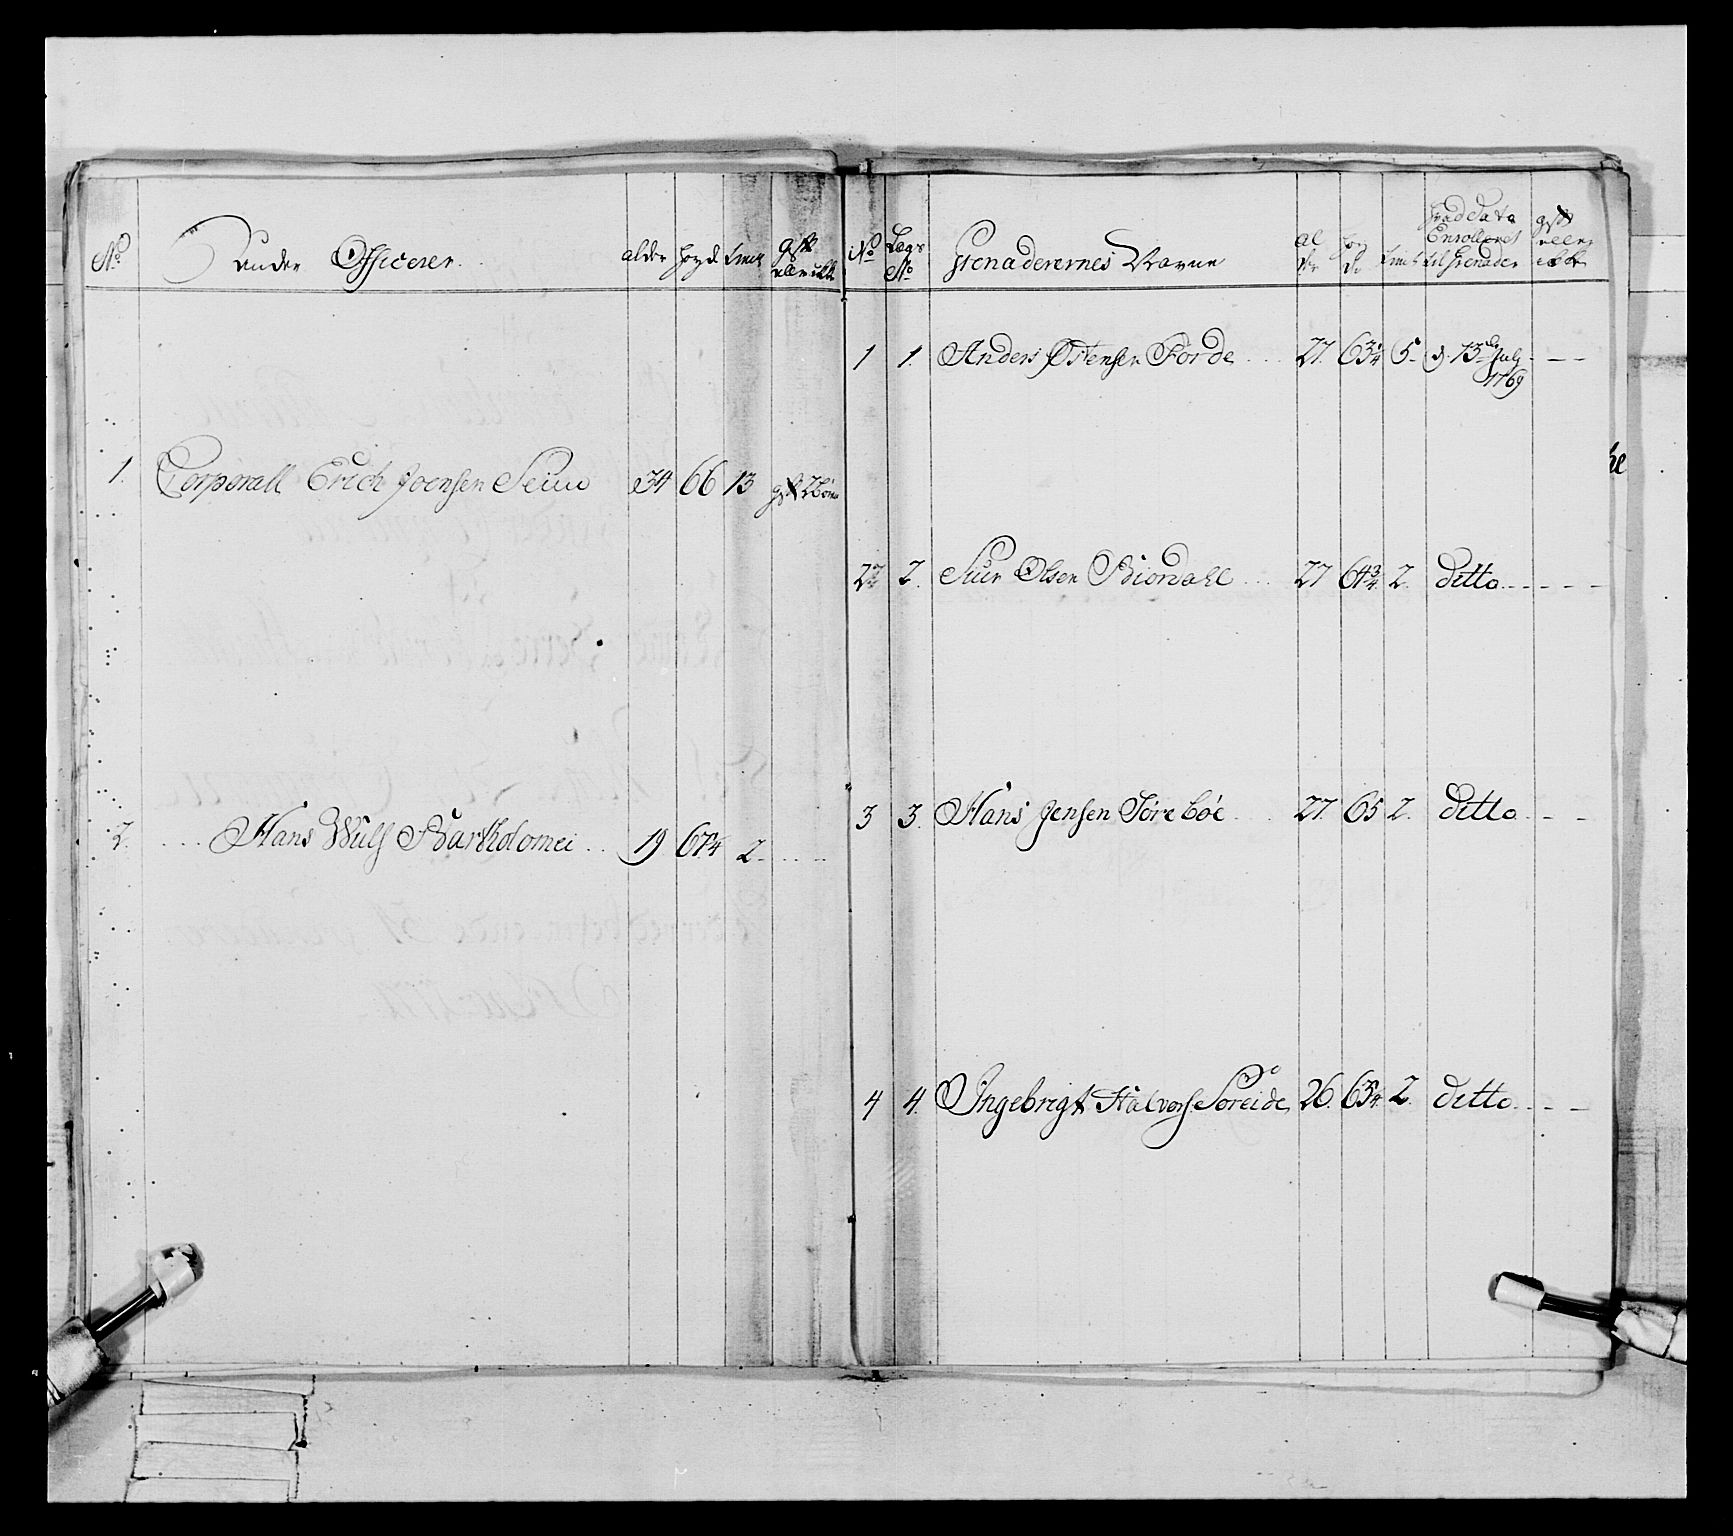 No Under Officerer alder høyd tieent gift eller ikke
1. Corporall Erich Joensen Seim 34 66 13 gift 2 børn
2. Hans Wulf Bartholomei 19 67 1/4 2
No Legs No Grenaderernes Navne Alder høyde tient hvad dato Enrolleret til Grenader gift eller ikke
1 1. Anders Østensen Førde 27. 63 1/4 5. d. 13de July 1769
2 2. Siur Olsen Biordahl 27 64 3/4 2. ditto
3 3. Hans Jensen Sørebøe 27. 65 2. ditto
4 4. Ingebrigt Halvors: Søreide 26. 63 2. ditto